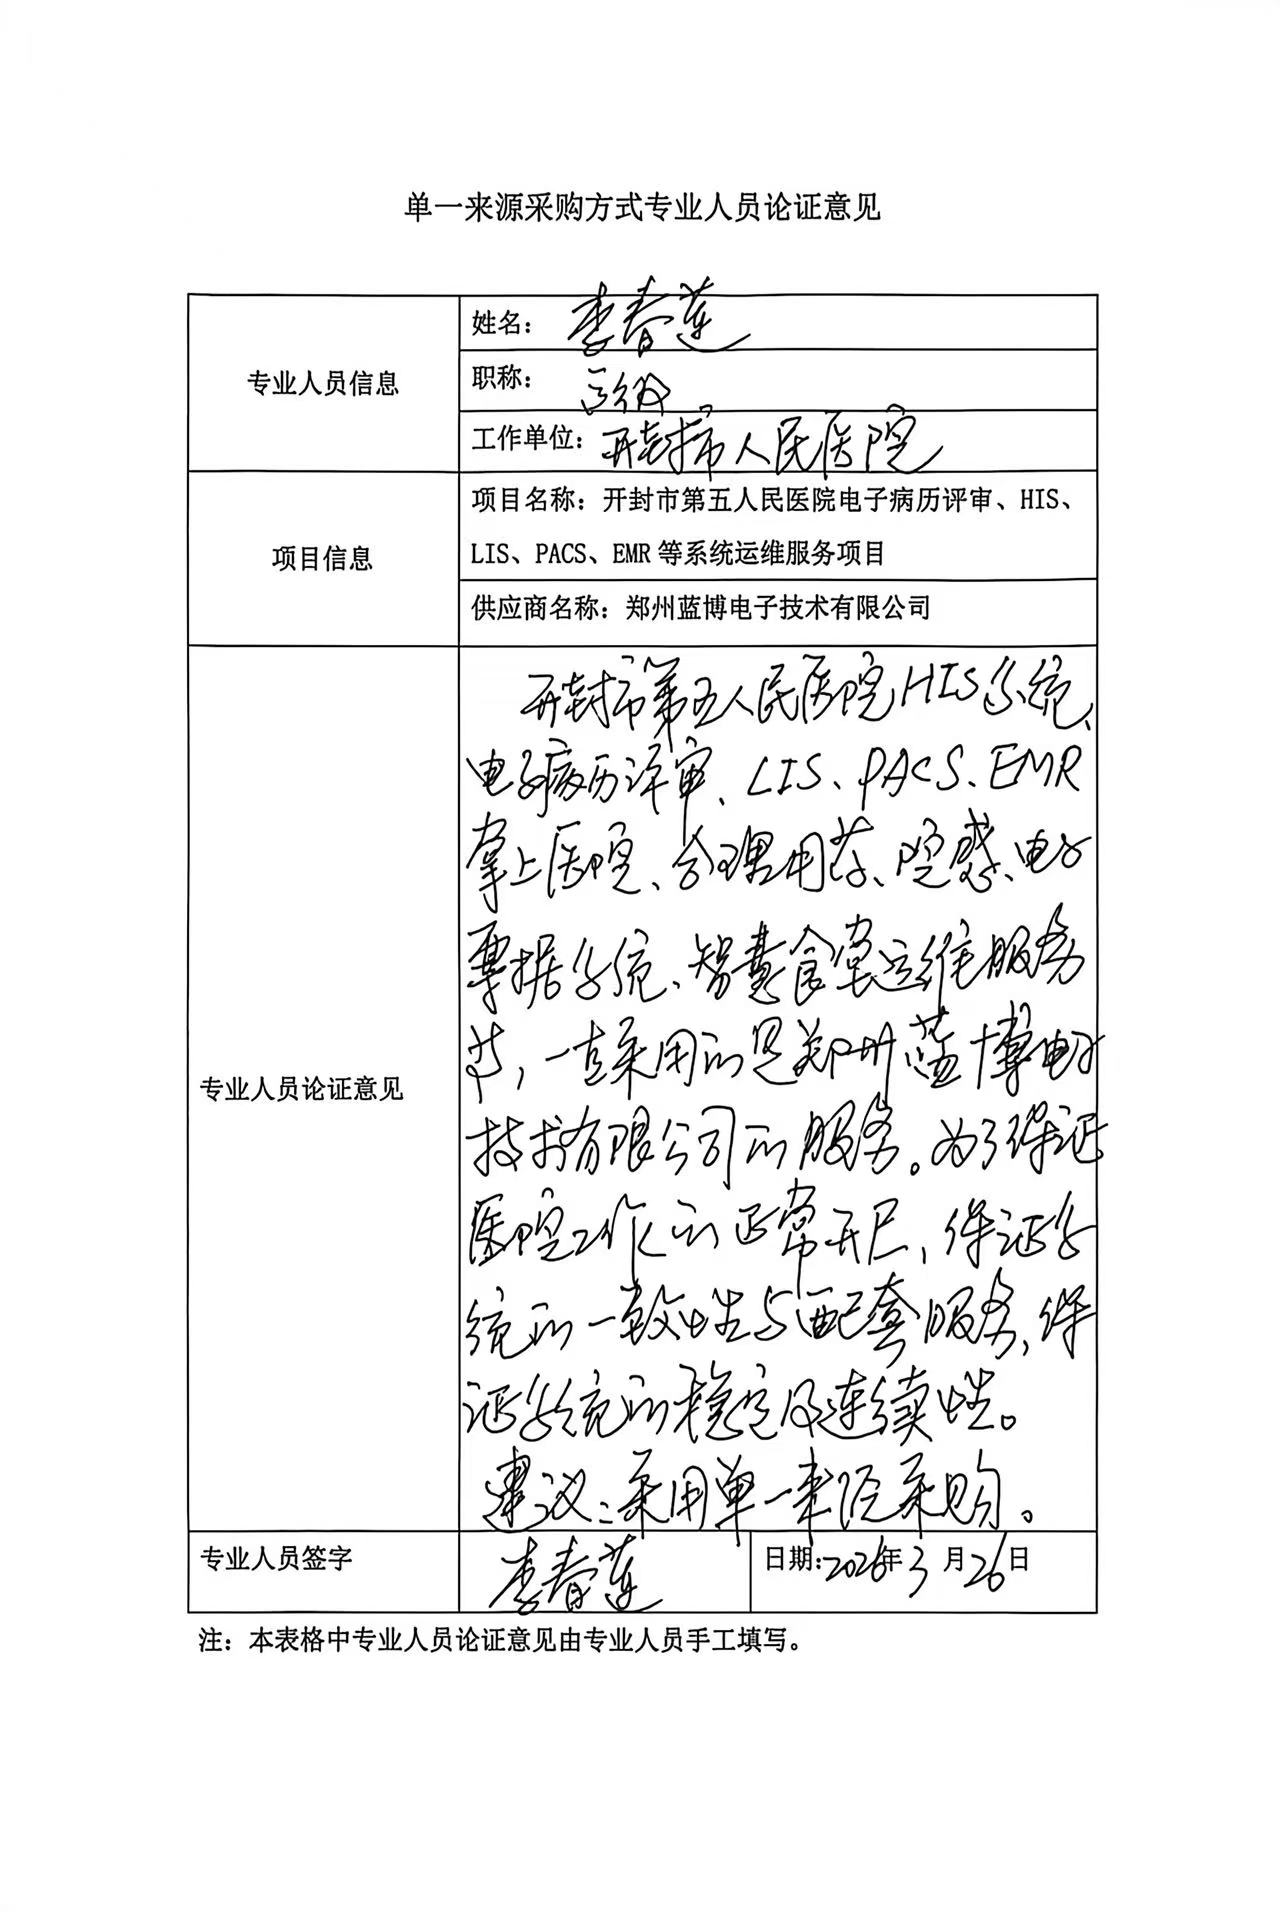 单一来源采购方式专业人员论证意见
专业人员信息
姓名：李春莲
职称：高级
工作单位：开封市人民医院
项目信息
项目名称：开封市第五人民医院电子病历评审、HIS、
LIS、PACS、EMR 等系统运维服务项目
供应商名称：郑州蓝博电子技术有限公司
专业人员论证意见
开封市第五人民医院HIS系统、
电子病历评审、LIS、PACS、EMR
掌上医院、合理用药、院感、电子
票据系统、智慧食堂运维服务
等，一直采用的是郑州蓝博电子
技术有限公司的服务。为了保证
医院工作的正常开展，保证系
统的一致性与配套服务，保
证系统的稳定及连续性。
建议：采用单一来源采购。
专业人员签字
李春莲
日期：2026年3月26日
注：本表格中专业人员论证意见由专业人员手工填写。